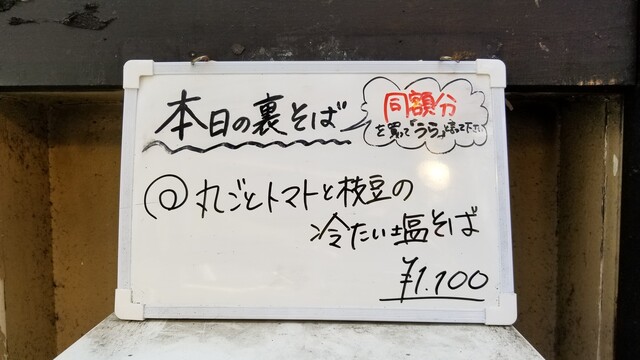 本日の裏そば
同額分
を買って「うら」と言って下さい
@丸ごとトマトと枝豆の
冷たい塩そば
¥1.100